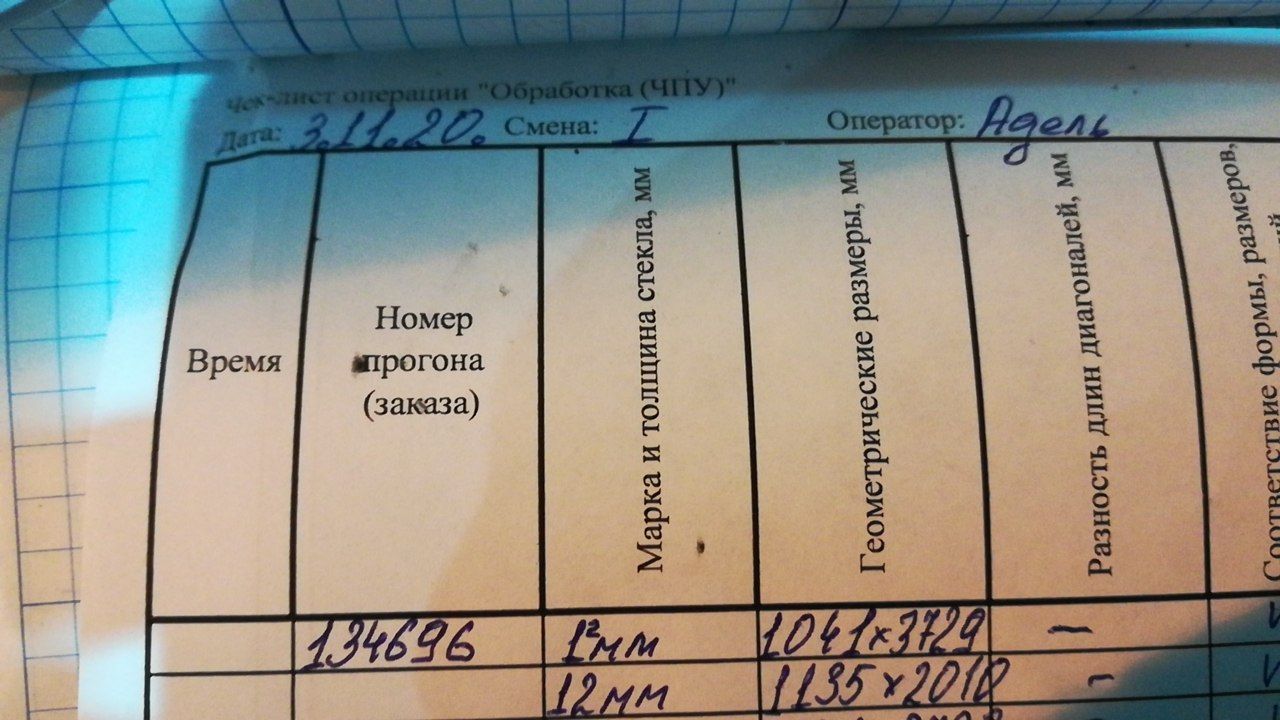 Чек-лист операции "Обработка (ЧПУ)"
Дата: 3.11.20. Смена: I Оператор: Адель
Время
Номер
прогона
(заказа)
Марка и толщина стекла, мм
Геометрические размеры, мм
Разность длин диагоналей, мм
Соответствие формы, размеров,
134696 12мм 1041×3729 –
12мм 1135×2010 –